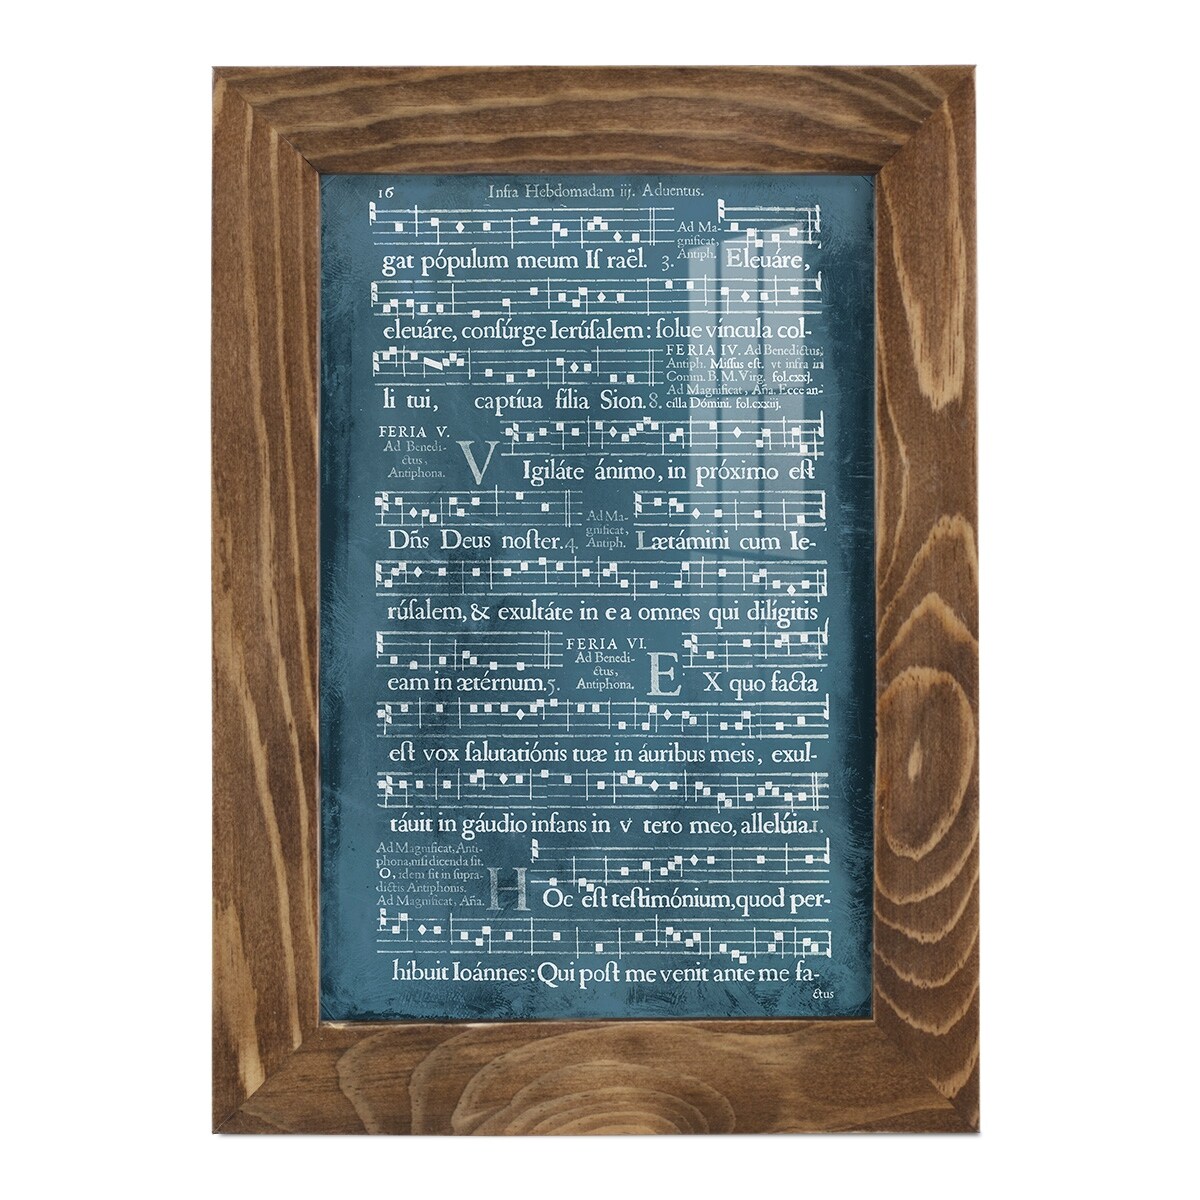 16 Infra Hebdomadam iij. Aduentus.
gat pópulum meum Iſ raël. 3. Ad Ma-
gnificat,
Antiph. Eleuáre,
eleuáre, conſúrge Ierúſalem : ſolue víncula col-
FERIA IV. Ad Benedictus,
Antiph. Miſſus eſt. vt infra in
Comm. B. M. Virg. fol.cxxj.
Ad Magnificat, Aña. Ecce an-
cilla Dómini. fol.cxxiij.
li tui, captíua fília Sion. 8.
FERIA V.
Ad Benedi-
ctus,
Antiphona.
VIgiláte ánimo, in próximo eſt
Dñs Deus noſter. 4. Ad Ma-
gnificat,
Antiph. Lætámini cum Ie-
rúſalem, & exultáte in e a omnes qui dilígitis
eam in ætérnum. 5. FERIA VI.
Ad Benedi-
ctus,
Antiphona. EX quo facta
eſt vox ſalutatiónis tuæ in áuribus meis, exul-
táuit in gáudio infans in v tero meo, allelúia. 1.
Ad Magnificat, Anti-
phona, niſi dicenda ſit.
O, idem fit in ſupra-
dictis Antiphonis.
Ad Magnificat, Aña.
HOc eſt teſtimónium, quod per-
híbuit Ioánnes : Qui poſt me venit ante me fa-
ctus